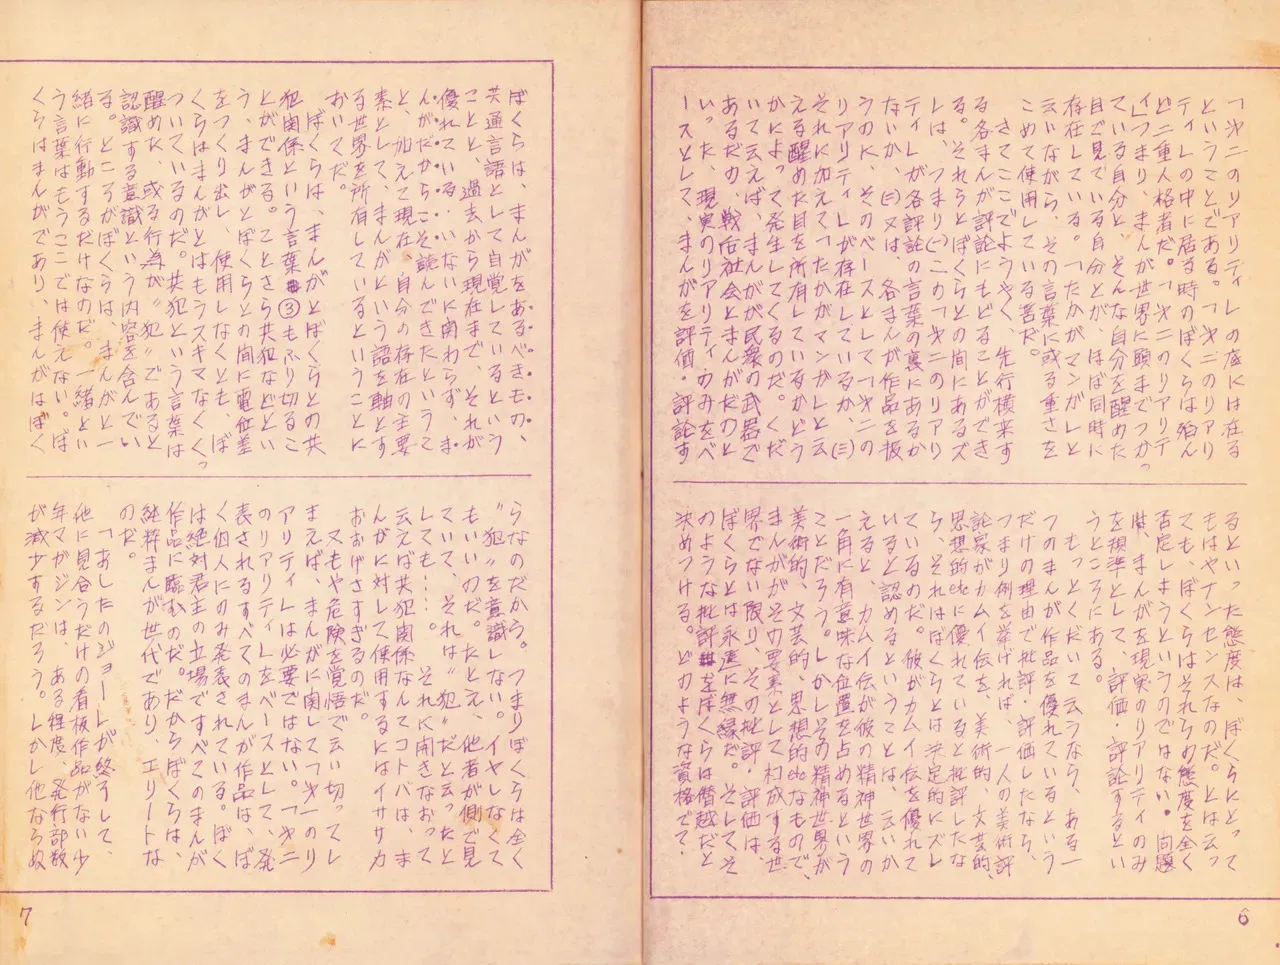 「㐧二のリアリティ」の底には在る
ということである。「㐧二のリアリ
ティ」の中に居る時のぼくらは殆ん
ど二重人格者だ。「㐧二のリアリテ
ィ」つまり、まんが世界に頭までつかっ
ている自分と、そんな自分を醒めた
目で見ている自分とが、ほぼ同時に
存在している。「たかがマンガ」と
云いながら、その言葉に或る重さを
こめて使用している筈だ。
さて、ここでようやく、先行横来す
る各まんが評論にもどることができ
る。それらとぼくらとの間にあるズ
レは、つまり㈠この「㐧二のリアリ
ティ」が各評論の言葉の裏にあるか
ないか、㈡又は、各まんが作品を扱
うのに、そのベースとして「㐧二の
リアリティ」が存在しているか、㈢
それに加えて「たかがマンガ」と云
える醒めた目を所有しているかどう
かによって発生してくるのだ。くだ
いて云えば、まんがが民衆の武器で
あるだの、戦后社会とまんがだのと
いった、現実のリアリティ・のみをベ
ースとして、まんがを評価・評論す
るといった態度は、ぼくらにとって
もはやナンセンスなのだ。とは云っ
ても、ぼくらはそれらの態度を全く
否定しようというのではない。問題
は、まんがを現実のリアリティのみ
を規準として、評価・評論するとい
うところにある。
もっとくだいて云うなら、ある一
つのまんが作品を優れているという
だけの理由で批評・評価したなら、
つまり例を挙げれば、一人の美術評
論家がカムイ伝を、美術的、文芸的、
思想的etcに優れていると批評したな
ら、それはぼくらとは決定的にズレ
ているのだ。彼がカムイ伝を優れて
いると認めるということは、云いか
えると、カムイ伝が彼の精神世界の
一角に有意味な位置を占めるという
ことだろう。しかしその精神世界が
美術的、文芸的、思想的etcなもので、
まんががその要素として村成する世
界でない限り、その批評・評価は、
ぼくらとは永遠に無縁だ。そしてそ
のような批評をぼくらは僭越だと
決めつける。どのような資格で、
6
ぼくらは、まんがをあるべきもの、
共通言語として自覚しているという
ことと、過去から現在まで、それが
優れている・いないに関わらず、ま
んがだからこそ読んできたというこ
と、加えて現在、自分の存在の主要
素として、まんがという語を軸とす
る世界を所有しているということに
おいてだ。
ぼくらは、まんがとぼくらとの共
犯関係という言葉③もふり切るこ
とができる。ことさら共犯などとい
う、まんがとぼくらとの間に電位差
をつくり出し、使用しなくとも、ぼ
くらはまんがとはもうスキマなくくっ
ついているのだ。共犯という言葉は
醒めた、或る行為が〝犯〟であると
認識する意識という内容を含んでい
る。ところがぼくらは、まんがと一
緒に行動するだけなのだ。一緒とい
う言葉はもうここでは使えない。ぼ
くらはまんがであり、まんがはぼく
らなのだから。つまりぼくらは全く
〝犯〟を意識しない。イヤしなくて
もいいのだ。たとえ、他者が側で見
ていて、それは〝犯〟だと云ったと
しても……。それに開きなおって
云えば共犯関係なんてコトバは、ま
んがに対して使用するにはイササカ
おおげさすぎるのだ。
又もや危険を覚悟で云い切ってし
まえば、まんがに関して「㐧一のリ
アリティ」は必要ではない。「㐧二
のリアリティ」をベースとして、発
表されるすべてのまんが作品は、ぼ
く個人にのみ発表されている。ぼく
は絶対君主の立場ですべてのまんが
作品に臨むのだ。だからぼくらは、
純粋まんが世代であり、エリートな
のだ。
「あしたのジョー」が終ろして、
他に見合うだけの看板作品がない少
年マガジンは、ある程度、発行部数
が減少するだろう。しかし他ならぬ
7